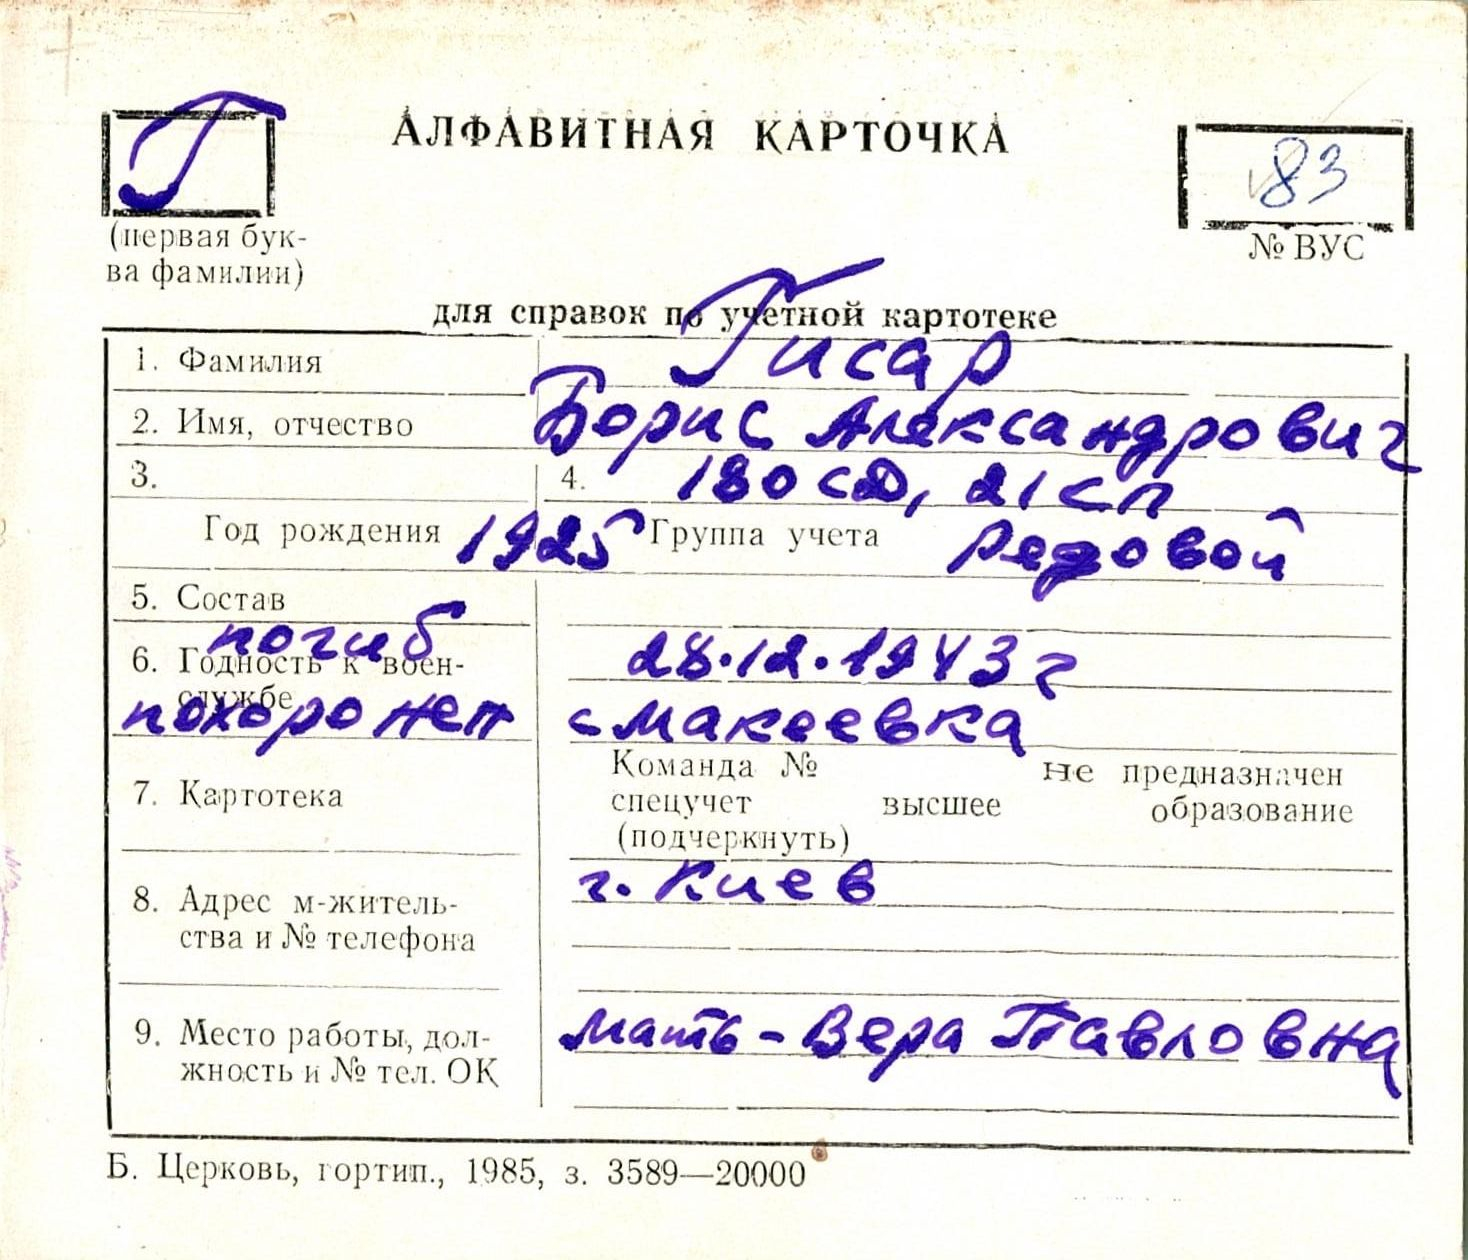 Г
АЛФАВИТНАЯ КАРТОЧКА
83
(первая бук-
ва фамилии)
№ ВУС
для справок по учетной картотеке
1. Фамилия Гисар
2. Имя, отчество Борис Александрович
3. 4. 180 сд, 21 сп
Год рождения 1925 Группа учета Рядовой
5. Состав
погиб 28.12.1943 г
6. Годность к воен-
службе
похоронен с Макеевка
7. Картотека
Команда № не предназначен
спецучет высшее образование
(подчеркнуть)
8. Адрес м-житель-
ства и № телефона
г. Киев
9. Место работы, дол-
жность и № тел. ОК
Мать - Вера Павловна
Б. Церковь, гортип., 1985, з. 3589—20000